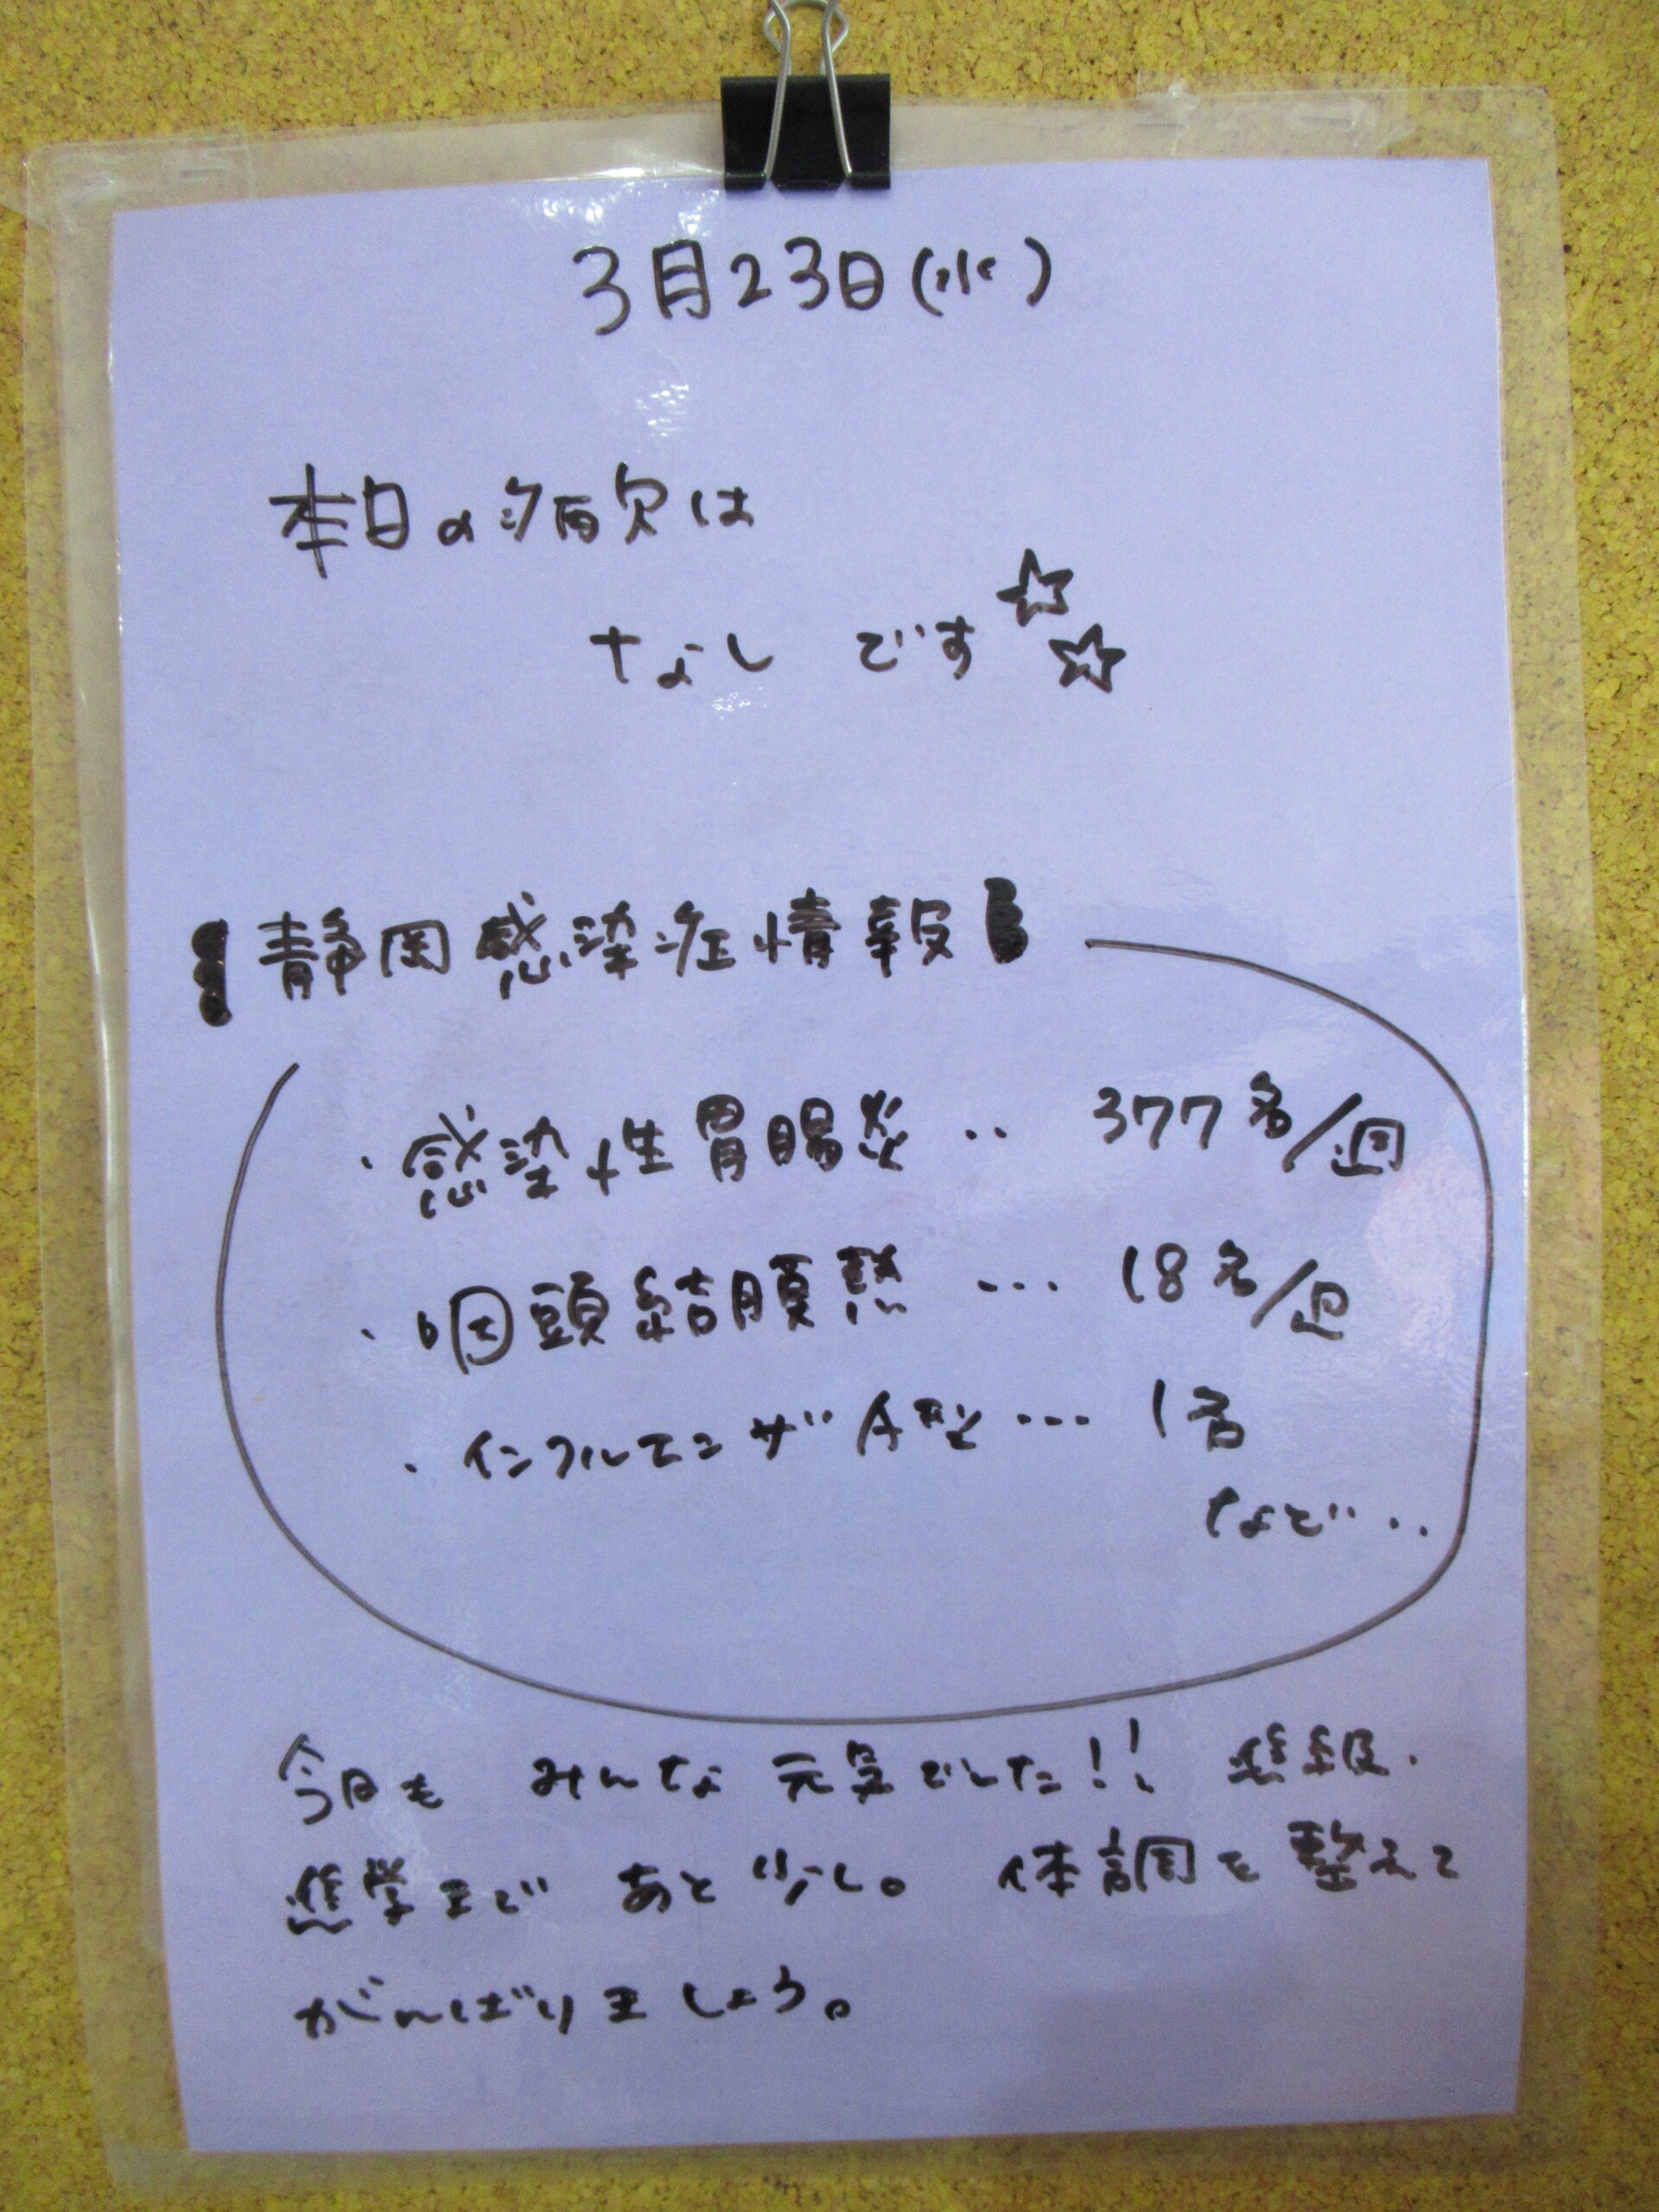 3月23日(水)
本日の病欠は
なし です☆☆
静岡感染症情報
・感染性胃腸炎‥ 377名/週
・咽頭結膜熱… 18名/週
・インフルエンザA型… 1名
など‥
今日も みんな元気でした!! 進級・
進学まで あと少し。 体調を整えて
がんばりましょう。